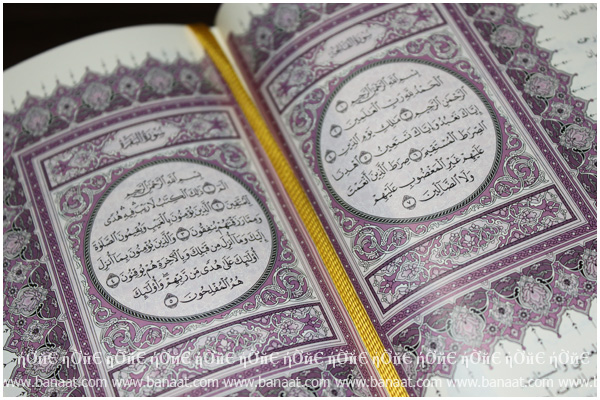 سُورَةُ الفَاتِحَةِ
بِسْمِ ٱللَّهِ ٱلرَّحْمَٰنِ ٱلرَّحِيمِ ١
ٱلْحَمْدُ لِلَّهِ رَبِّ ٱلْعَٰلَمِينَ ٢
ٱلرَّحْمَٰنِ ٱلرَّحِيمِ ٣ مَٰلِكِ يَوْمِ ٱلدِّينِ ٤
إِيَّاكَ نَعْبُدُ وَإِيَّاكَ نَسْتَعِينُ ٥ ٱهْدِنَا
ٱلصِّرَٰطَ ٱلْمُسْتَقِيمَ ٦ صِرَٰطَ ٱلَّذِينَ أَنْعَمْتَ
عَلَيْهِمْ غَيْرِ ٱلْمَغْضُوبِ عَلَيْهِمْ
وَلَا ٱلضَّآلِّينَ ٧
سُورَةُ البَقَرَةِ
بِسْمِ ٱللَّهِ ٱلرَّحْمَٰنِ ٱلرَّحِيمِ
الٓمٓ ١ ذَٰلِكَ ٱلْكِتَٰبُ لَا رَيْبَ فِيهِ هُدًى
لِّلْمُتَّقِينَ ٢ ٱلَّذِينَ يُؤْمِنُونَ بِٱلْغَيْبِ وَيُقِيمُونَ ٱلصَّلَوٰةَ
وَمِمَّا رَزَقْنَٰهُمْ يُنفِقُونَ ٣ وَٱلَّذِينَ يُؤْمِنُونَ بِمَآ أُنزِلَ
إِلَيْكَ وَمَآ أُنزِلَ مِن قَبْلِكَ وَبِٱلْءَاخِرَةِ هُمْ يُوقِنُونَ ٤
أُو۟لَٰٓئِكَ عَلَىٰ هُدًى مِّن رَّبِّهِمْ وَأُو۟لَٰٓئِكَ
هُمُ ٱلْمُفْلِحُونَ ٥
www.banaat.com www.banaat.com www.banaat.com www.banaat.com www.banaat.com